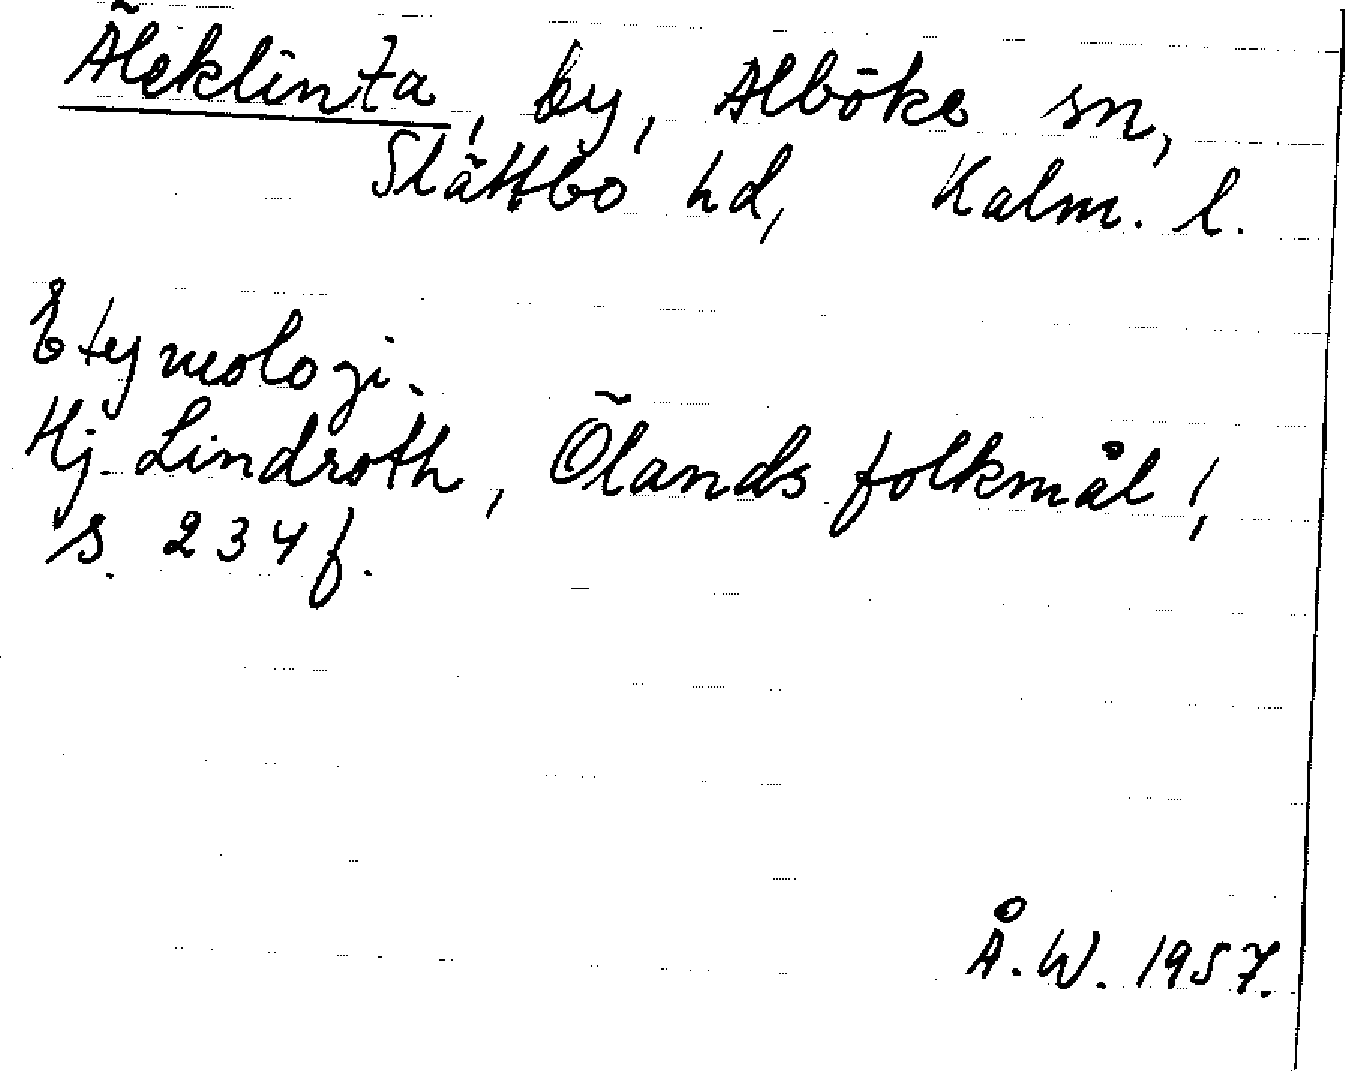 Äleklinta, by, Alböke sn,
Slättbo hd, Kalm. l.
Etymologi.
Hj. Lindroth, Ölands folkmål I,
s. 234 f.
Å. W. 1957.